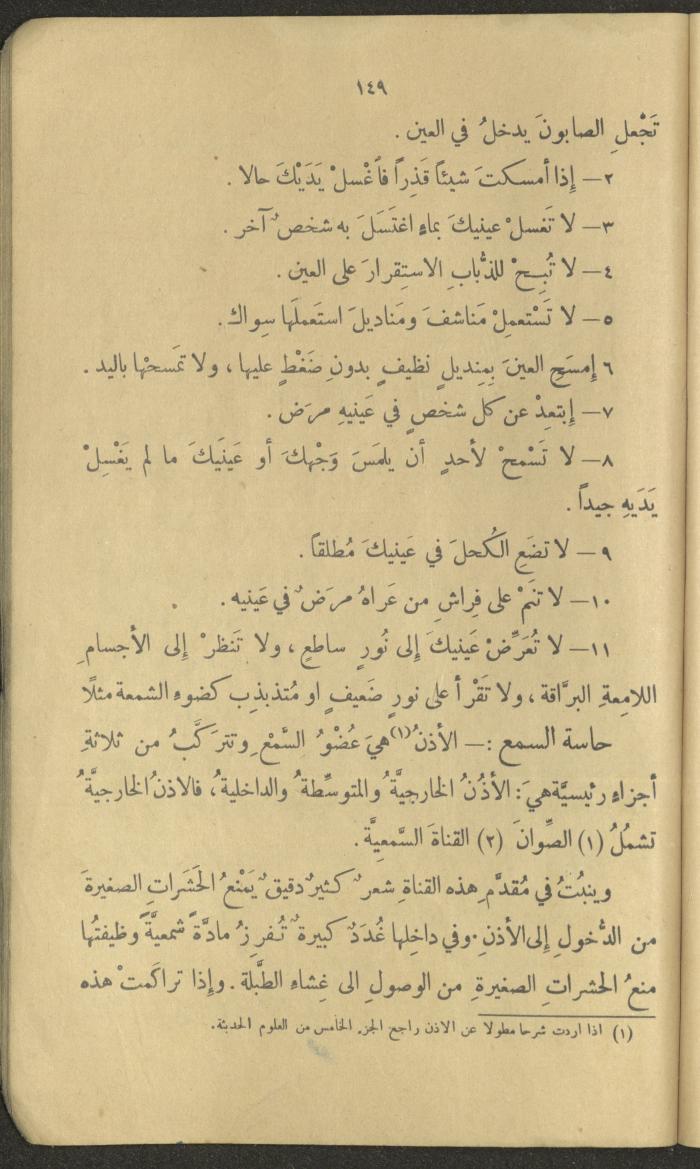 ١٤٩
تَجْعلِ الصابونَ يدخلُ في العين .
٢ – إِذا أمسكتَ شيئاً قَذِراً فاَغْسلْ يَدَيْكَ حالا .
٣ – لا تَغسلْ عينيكَ بماءِ اغتَسَلَ به شخصٌ آخر .
٤ – لا تُبِحْ للذُّبابِ الاستِقرارَ على العين .
٥ – لا تَسْتعمِلْ مَناشفَ ومَناديلَ استَعملَها سِواك .
٦ إِمسَحِ العينَ بِمِنديلٍ نظيفٍ بدونِ ضَغْطٍ عليها ، ولا تمَسحْها باليد .
٧ – إِبتعِدْ عن كل شخصٍ في عَينيهِ مرَض .
٨ – لا تَسْمحْ لأحدٍ أن يلمَسَ وَجْهكَ أو عَينَيكَ ما لم يَغْسِلْ
يَدَيهِ جيداً .
٩ – لا تضَعِ الكُحلَ في عَينيكَ مُطلقاً .
١٠ – لا تنَمْ على فِراشِ من عَراهُ مرَضٌ في عَينيه .
١١ – لا تُعَرِّضْ عَينيكَ إِلى نُورٍ ساطعٍ ، ولا تَنظرْ إِلى الأجسامِ
اللامِعةِ البرَّاقة ، ولا تَقْرأ على نورٍ ضَعيفٍ او مُتذبذِب كضوءِ الشمعة مثلًا
حاسة السمع : – الأذنُ (١) هيَ عُضْوُ السَّمْعِ وتترَكَّبُ من ثلاثةِ
أجزاءِ رئيسيَّة هيَ : الأذُنُ الخارجيَّةُ والمتوسِّطةُ والداخليةُ ، فالاذنُ الخارجيَّةُ
تشمُلُ (١) الصِّوانَ (٢) القناةَ السَّمعيَّة .
وينبُتُ في مُقدَّمِ هذه القناةِ شعرٌ كثيرٌ دقيقٌ يَمْنعُ الحَشَراتِ الصغيرةَ
من الدُّخولِ إِلى الأذن . وفي داخِلها غُدَدٌ كبيرةٌ تُفرِزُ مادَّةً شمعيَّةً وظيفتُها
منعُ الحشراتِ الصغيرةِ من الوصولِ الى غِشاءِ الطَّبلة . وإِذا تراكَمتْ هذه
(١) اذا اردت شرحا مطولا عن الاذن راجع الجزء الخامس من العلوم الحديثة .